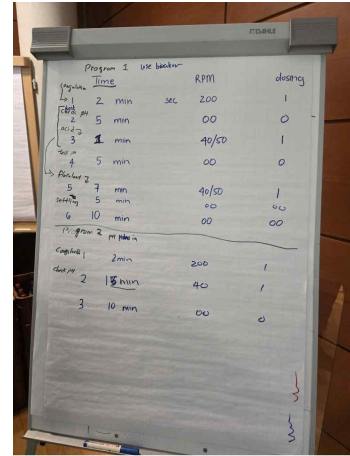 DAHLE
Program 1 use beaker
Time RPM dosing
coagulation
1 2 min sec 200 1
check pH
2 5 min 00 0
acid
3 1 min 40/50 1
4 5 min 00 0
Flocculant
5 7 min 40/50 1
settling 5 min 00 00
6 10 min 00 00
Program 2
1 2 min 200 1
check pH
2 15 min 40 1
3 10 min 00 0